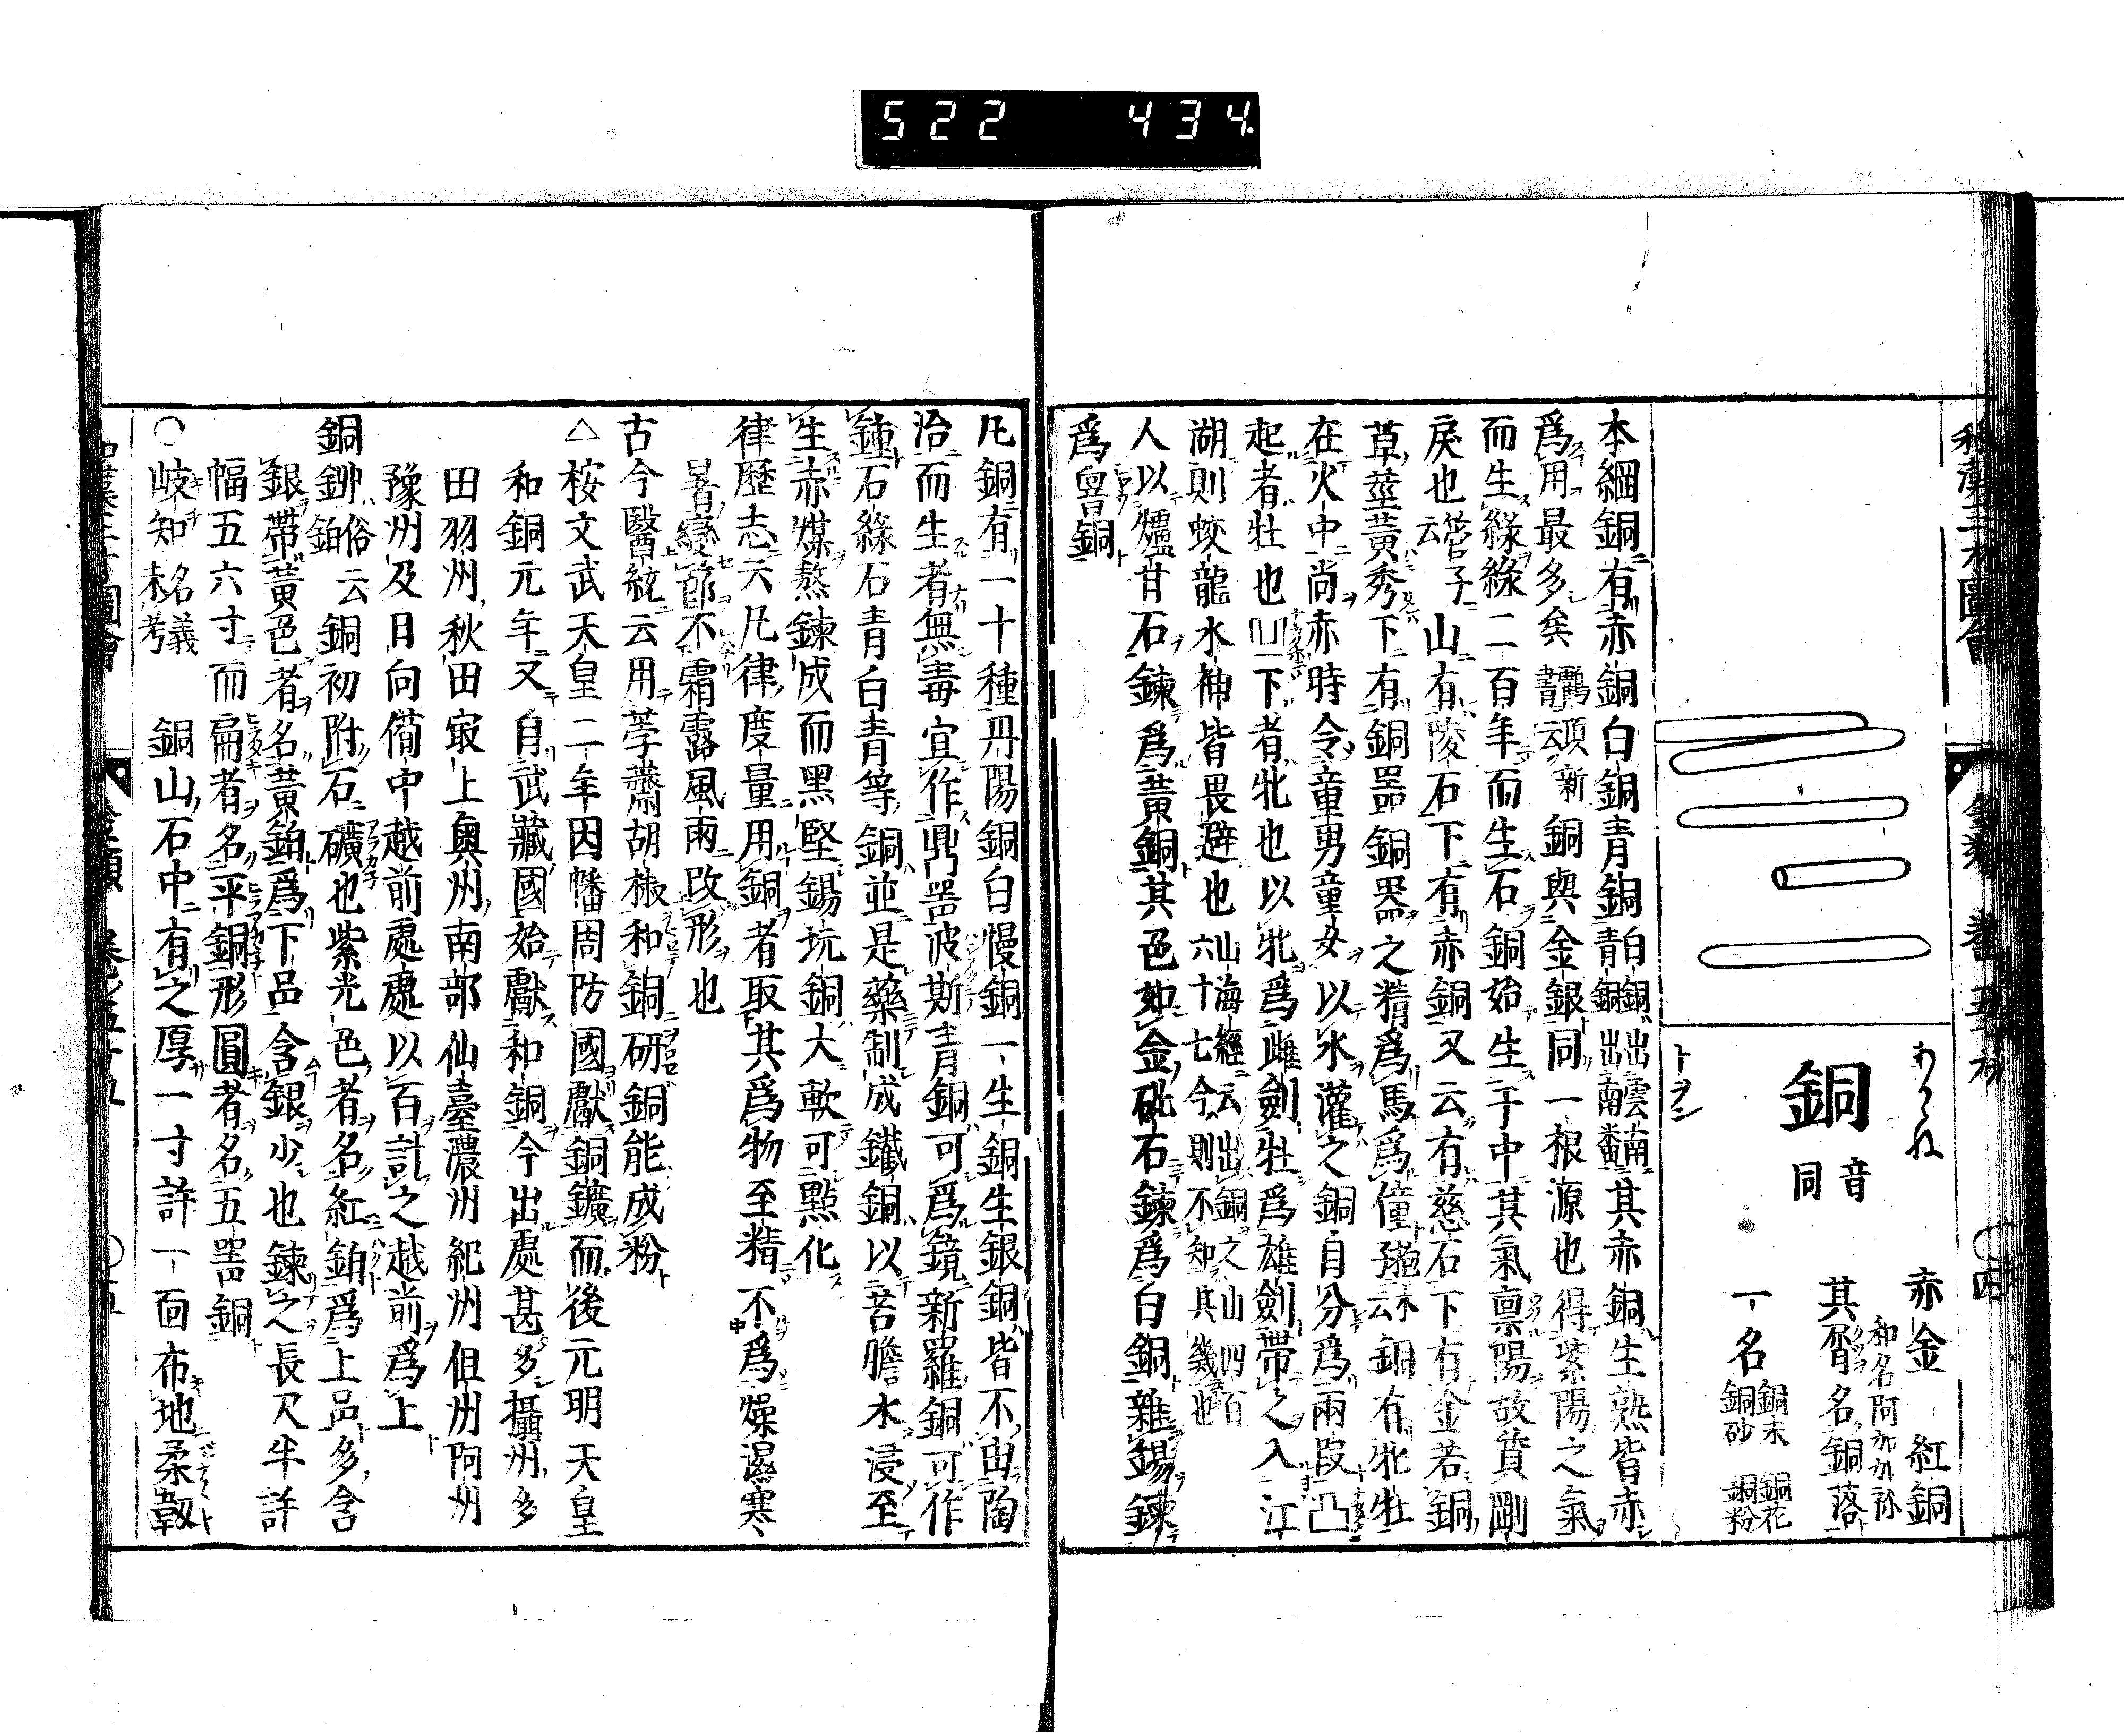 522 434.
和漢三才圖會
金類 卷五十九
四
あかゞね
赤金 紅銅
和名阿加加祢
銅
音同
其屑名銅落
一名 銅末 銅花 銅砂 銅粉
トヲン
本綱銅有赤銅白銅青銅白銅出雲南青銅出南番其赤銅生熟皆赤
爲用最多矣鶴頂新書云銅與金銀同一根源也得紫陽之氣
而生綠綠二百年而生石銅始生于中其氣禀陽故質剛
戾也管子云山有陵石下有赤銅又云有慈石下有金若銅
草莖黃秀下有銅器銅器之精爲馬爲僮抱朴子云銅有牝牡
在火中尚赤時令童男童女以水灌之銅自分爲兩段凸
起者牡也凹下者牝也以牝爲雌劍牡爲雄劍帶之入江
湖則蛟龍水神皆畏避也山海經云出銅之山四百六十七今則不知其幾也
人以爐甘石鍊爲黃銅其色如金砒石鍊爲白銅雜錫鍊
爲響銅
凡銅有一十種丹陽銅白慢銅一生銅生銀銅皆不由陶
冶而生者無毒宜作鼎器波斯青銅可爲鏡新羅銅可作
鍾石綠石青白青等銅並是藥制成鐵銅以苦膽水浸至
生赤煤熬鍊成而黑堅錫坑銅大軟可點化
律歷志云凡律度量用銅者取其爲物至精不爲燥濕寒
暑變節不霜露風雨改形也
古今醫統云用荸薺胡椒和銅研銅能成粉
△桉文武天皇二年因幡周防國獻銅鑛而後元明天皇
和銅元年又自武藏國始獻和銅今出處甚多攝州多
田羽州秋田最上奧州南部仙臺濃州紀州但州阿州
豫州及日向備中越前處處以百計之越前爲上
銅鉚鉑俗云銅初附石礦也紫光色者名紅鉑爲上品多含
銀帶黃色者名黃鉑爲下品含銀少也鍊之長尺半許
幅五六寸而扁者名平銅形圓者名五器銅
○岐知名義未考 銅山石中有之厚一寸許一面布地柔韌
和漢三才圖會
金類 卷五十九
〇五